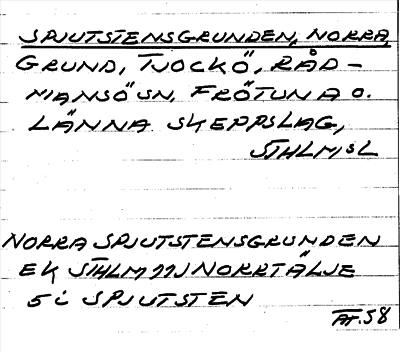 SPJUTSTENSGRUNDEN, NORRA,
GRUND, TJOCKÖ, RÅD-
MANSÖ SN, FRÖTUNA O.
LÄNNA SKEPPSLAG,
STHLMSL
NORRA SPJUTSTENSGRUNDEN
EK STHLM NORRTÄLJE
5 i SPJUTSTEN
AF.58